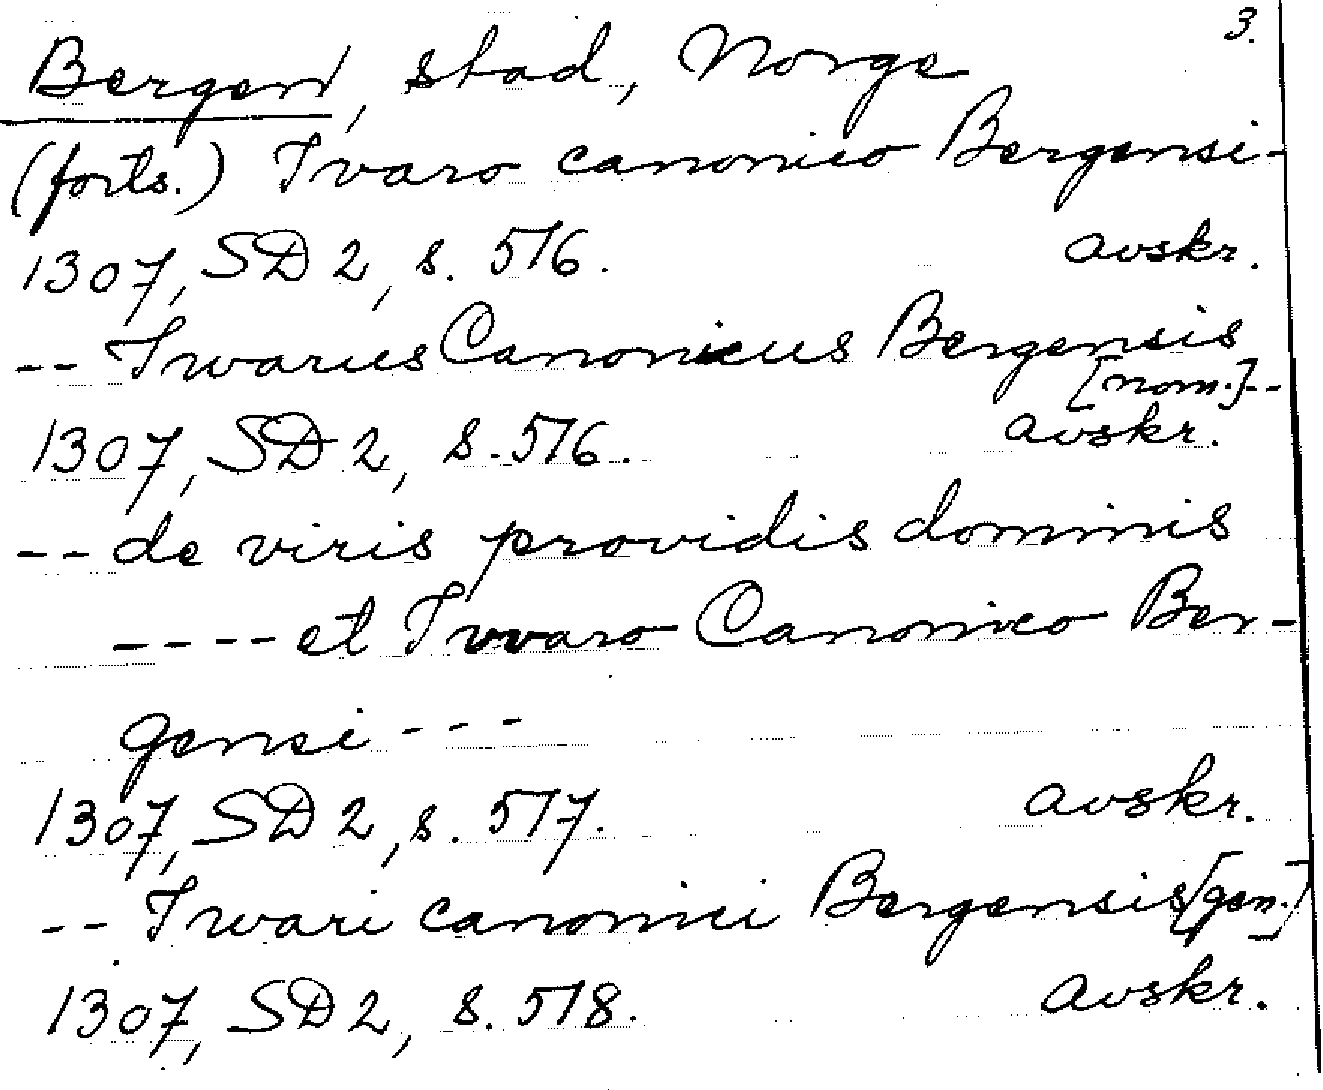 3.
Bergen, stad, Norge
(forts.) Ivaro canonico Bergensi-
1307, SD 2, s. 516. avskr.
-- Iwarus Canonicus Bergensis
[nom.]--
1307, SD 2, s. 516. avskr.
-- de viris providis dominis
---- et Iwaro Canonico Ber-
gensi ---
1307, SD 2, s. 517. avskr.
-- Iwari canonici Bergensis [gen.]
1307, SD 2, s. 518. avskr.